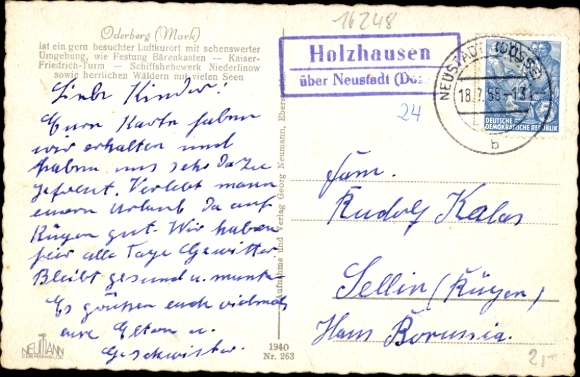 16248
Oderberg (Mark)
ist ein gern besuchter Luftkurort mit sehenswerter
Umgebung, wie Festung Bärenkasten — Kaiser-
Friedrich-Turm — Schiffshebewerk Niederfinow
sowie herrlichen Wäldern mit vielen Seen
Liebe Kinder!
Eure Karte haben
wir erhalten und
haben uns sehr dazu
gefreut. Verlebt mann
euern Urlaub da auf
Rügen gut. Wir haben
hier alle Tage Gewitter.
Bleibt gesund u. munter
Es grüßen euch vielmals
eure Eltern u.
Geschwister.
NEUMANN
Aufnahme und Verlag Georg Neumann, Ebers
1940
Nr. 263
Holzhausen
über Neustadt (Do
NEUSTADT (DOSSE)
18.7.58-13
b
DEUTSCHE
DEMOKRATISCHE REPUBLIK
24
Fam.
Rudolf Kalas
Sellin (Rügen)
Haus Borussia.
2,-